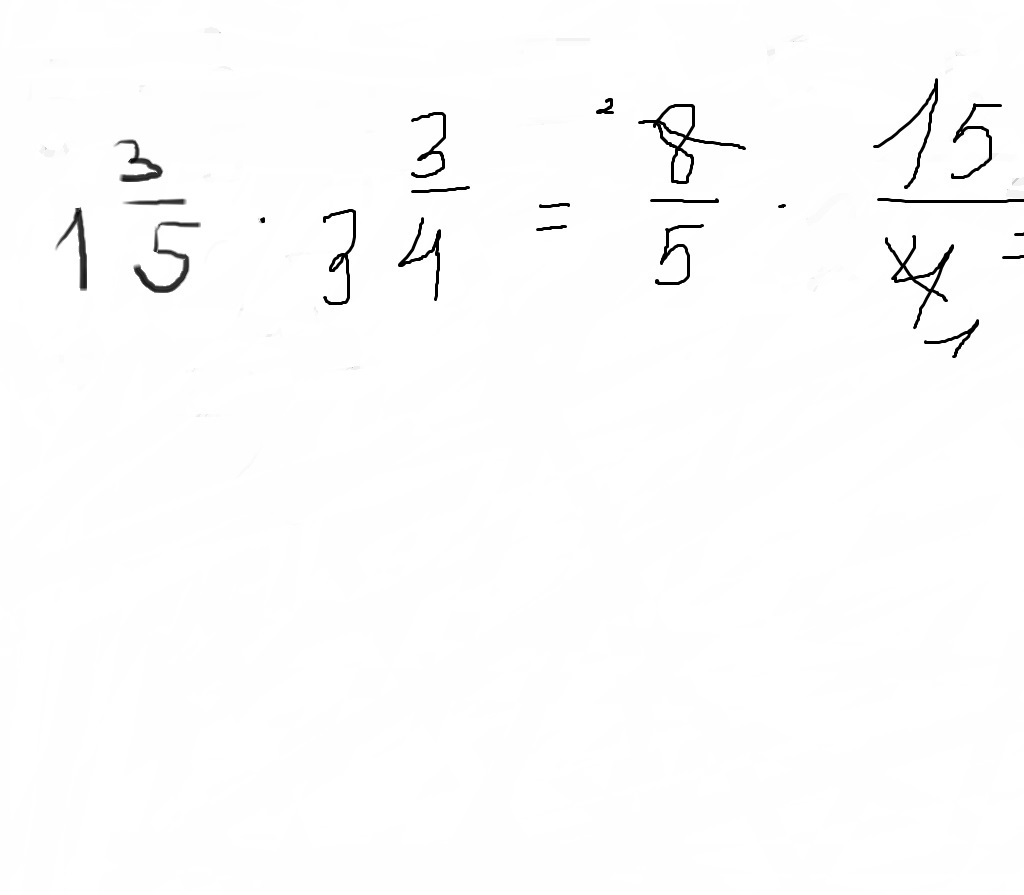 1 3/5 · 3 3/4 = ² 8/5 · 15/4 ₁ =